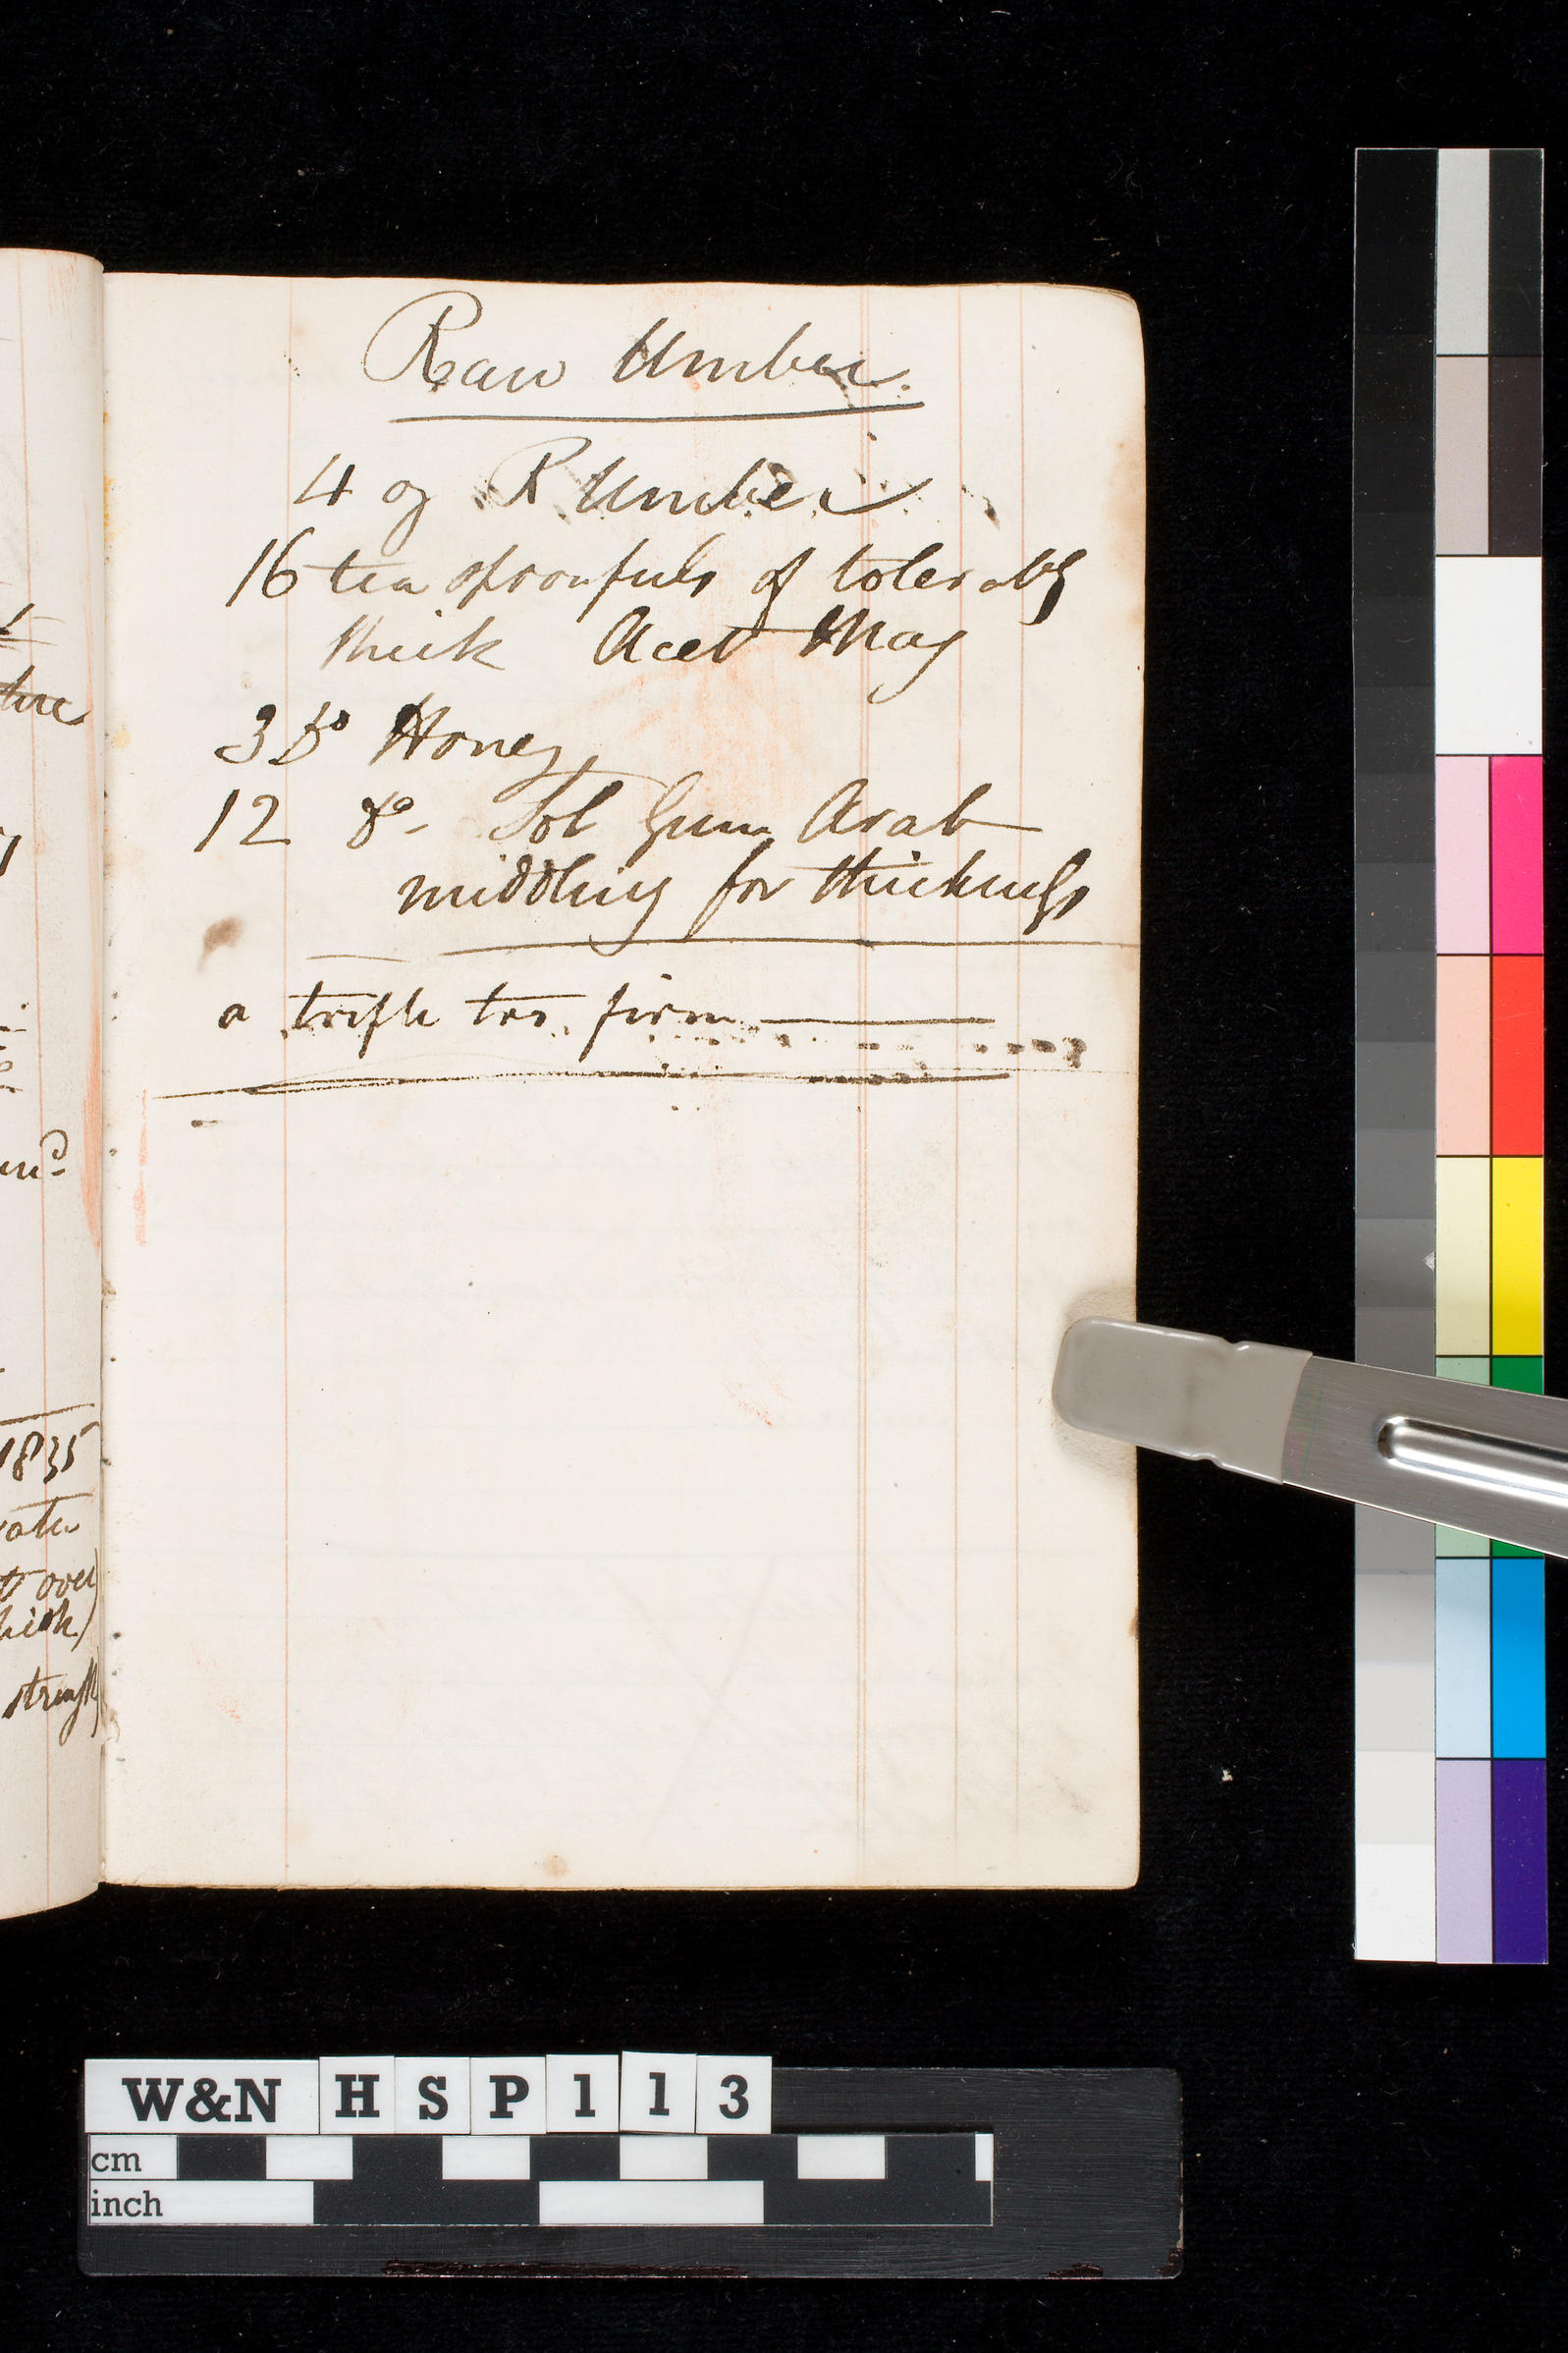 Raw Umber.
4 oz R Umber
16 tea spoonfuls of tolerably
thick Acet Mag
3 Do Honey
12 do - Sol Gum Arab
middling for thickness
a trifle too firm
1835
over
strength
W&N HSP113
cm
inch